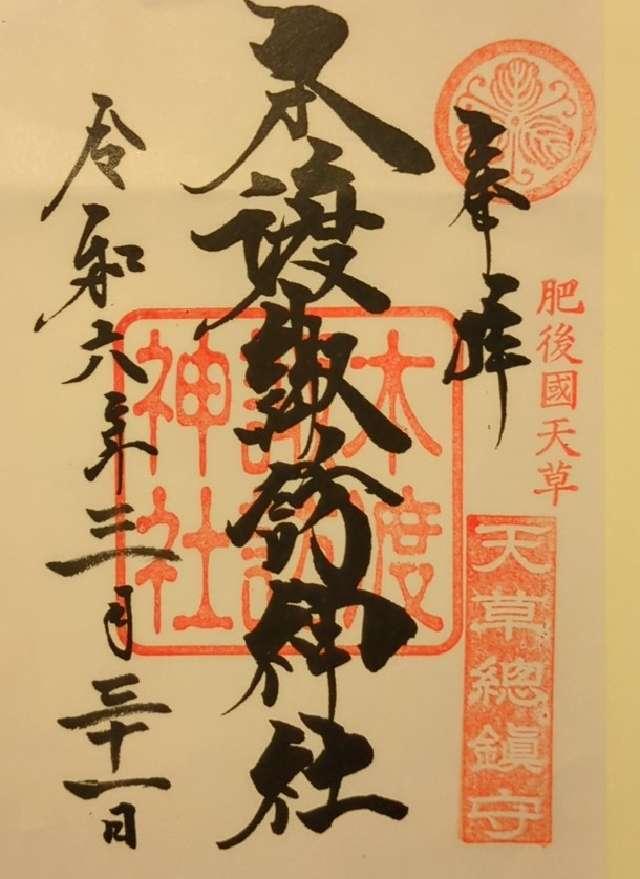 奉拝
肥後國天草
天草總鎮守
本渡諏訪神社
諏訪
神社
令和六年三月三十一日